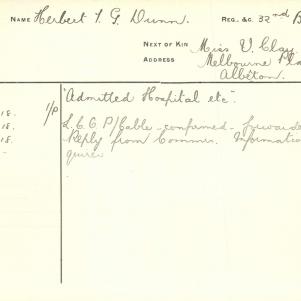 NAME Herbert T. G. Dunn. REG. &C. 32nd B
NEXT OF KIN Miss V. Clay.
ADDRESS Melbourne Pla
Albert
"Admitted Hospital etc".
18.
18. Cable confirmed forwarde
18. Reply from Commr. Informatio